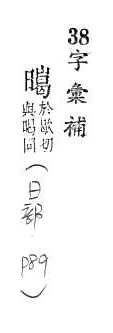 38字彙補
暍於歇切
與喝同
(日部 P89)